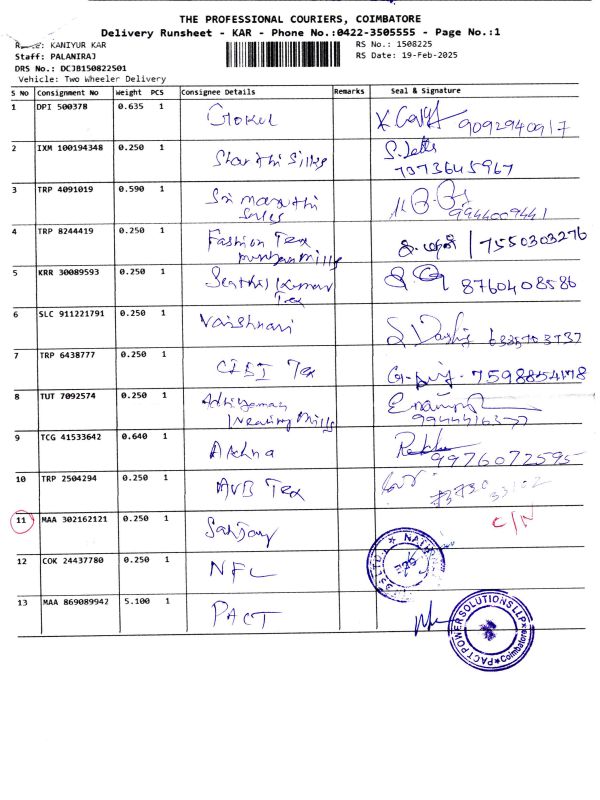 THE PROFESSIONAL COURIERS, COIMBATORE
Delivery Runsheet - KAR - Phone No.:0422-3505555 - Page No.:1
KANIYUR KAR RS No.: 1508225
Staff: PALANIRAJ RS Date: 19-Feb-2025
DRS No.: DCJB150822501
Vehicle: Two Wheeler Delivery
S No Consignment No Weight PCS Consignee Details Remarks Seal & Signature
1 DPI 500378 0.635 1 Gokul 9092940917
2 IXM 100194348 0.250 1 Sharithi Silks
7373645967
3 TRP 4091019 0.590 1 Sri maruthi
Sales 9944009441
4 TRP 8244419 0.250 1 Fashion Tex 7550303276
mills
5 KRR 30089593 0.250 1 Senthil Kumar 8760408586
Tex
6 SLC 911221791 0.250 1 Vaishnavi
7 TRP 6438777 0.250 1 CIBI Tex 7598854178
8 TUT 7092574 0.250 1 Adhiyaman
Weaving Mills
9 TCG 41533642 0.640 1 Rekha
9976072595
10 TRP 2504294 0.250 1 AVB Tex
11 MAA 302162121 0.250 1 Sanjay C/N
12 COK 24437780 0.250 1 NFL
13 MAA 869089942 5.100 1 PACT
PACT POWER SOLUTIONS LLP
Coimbatore